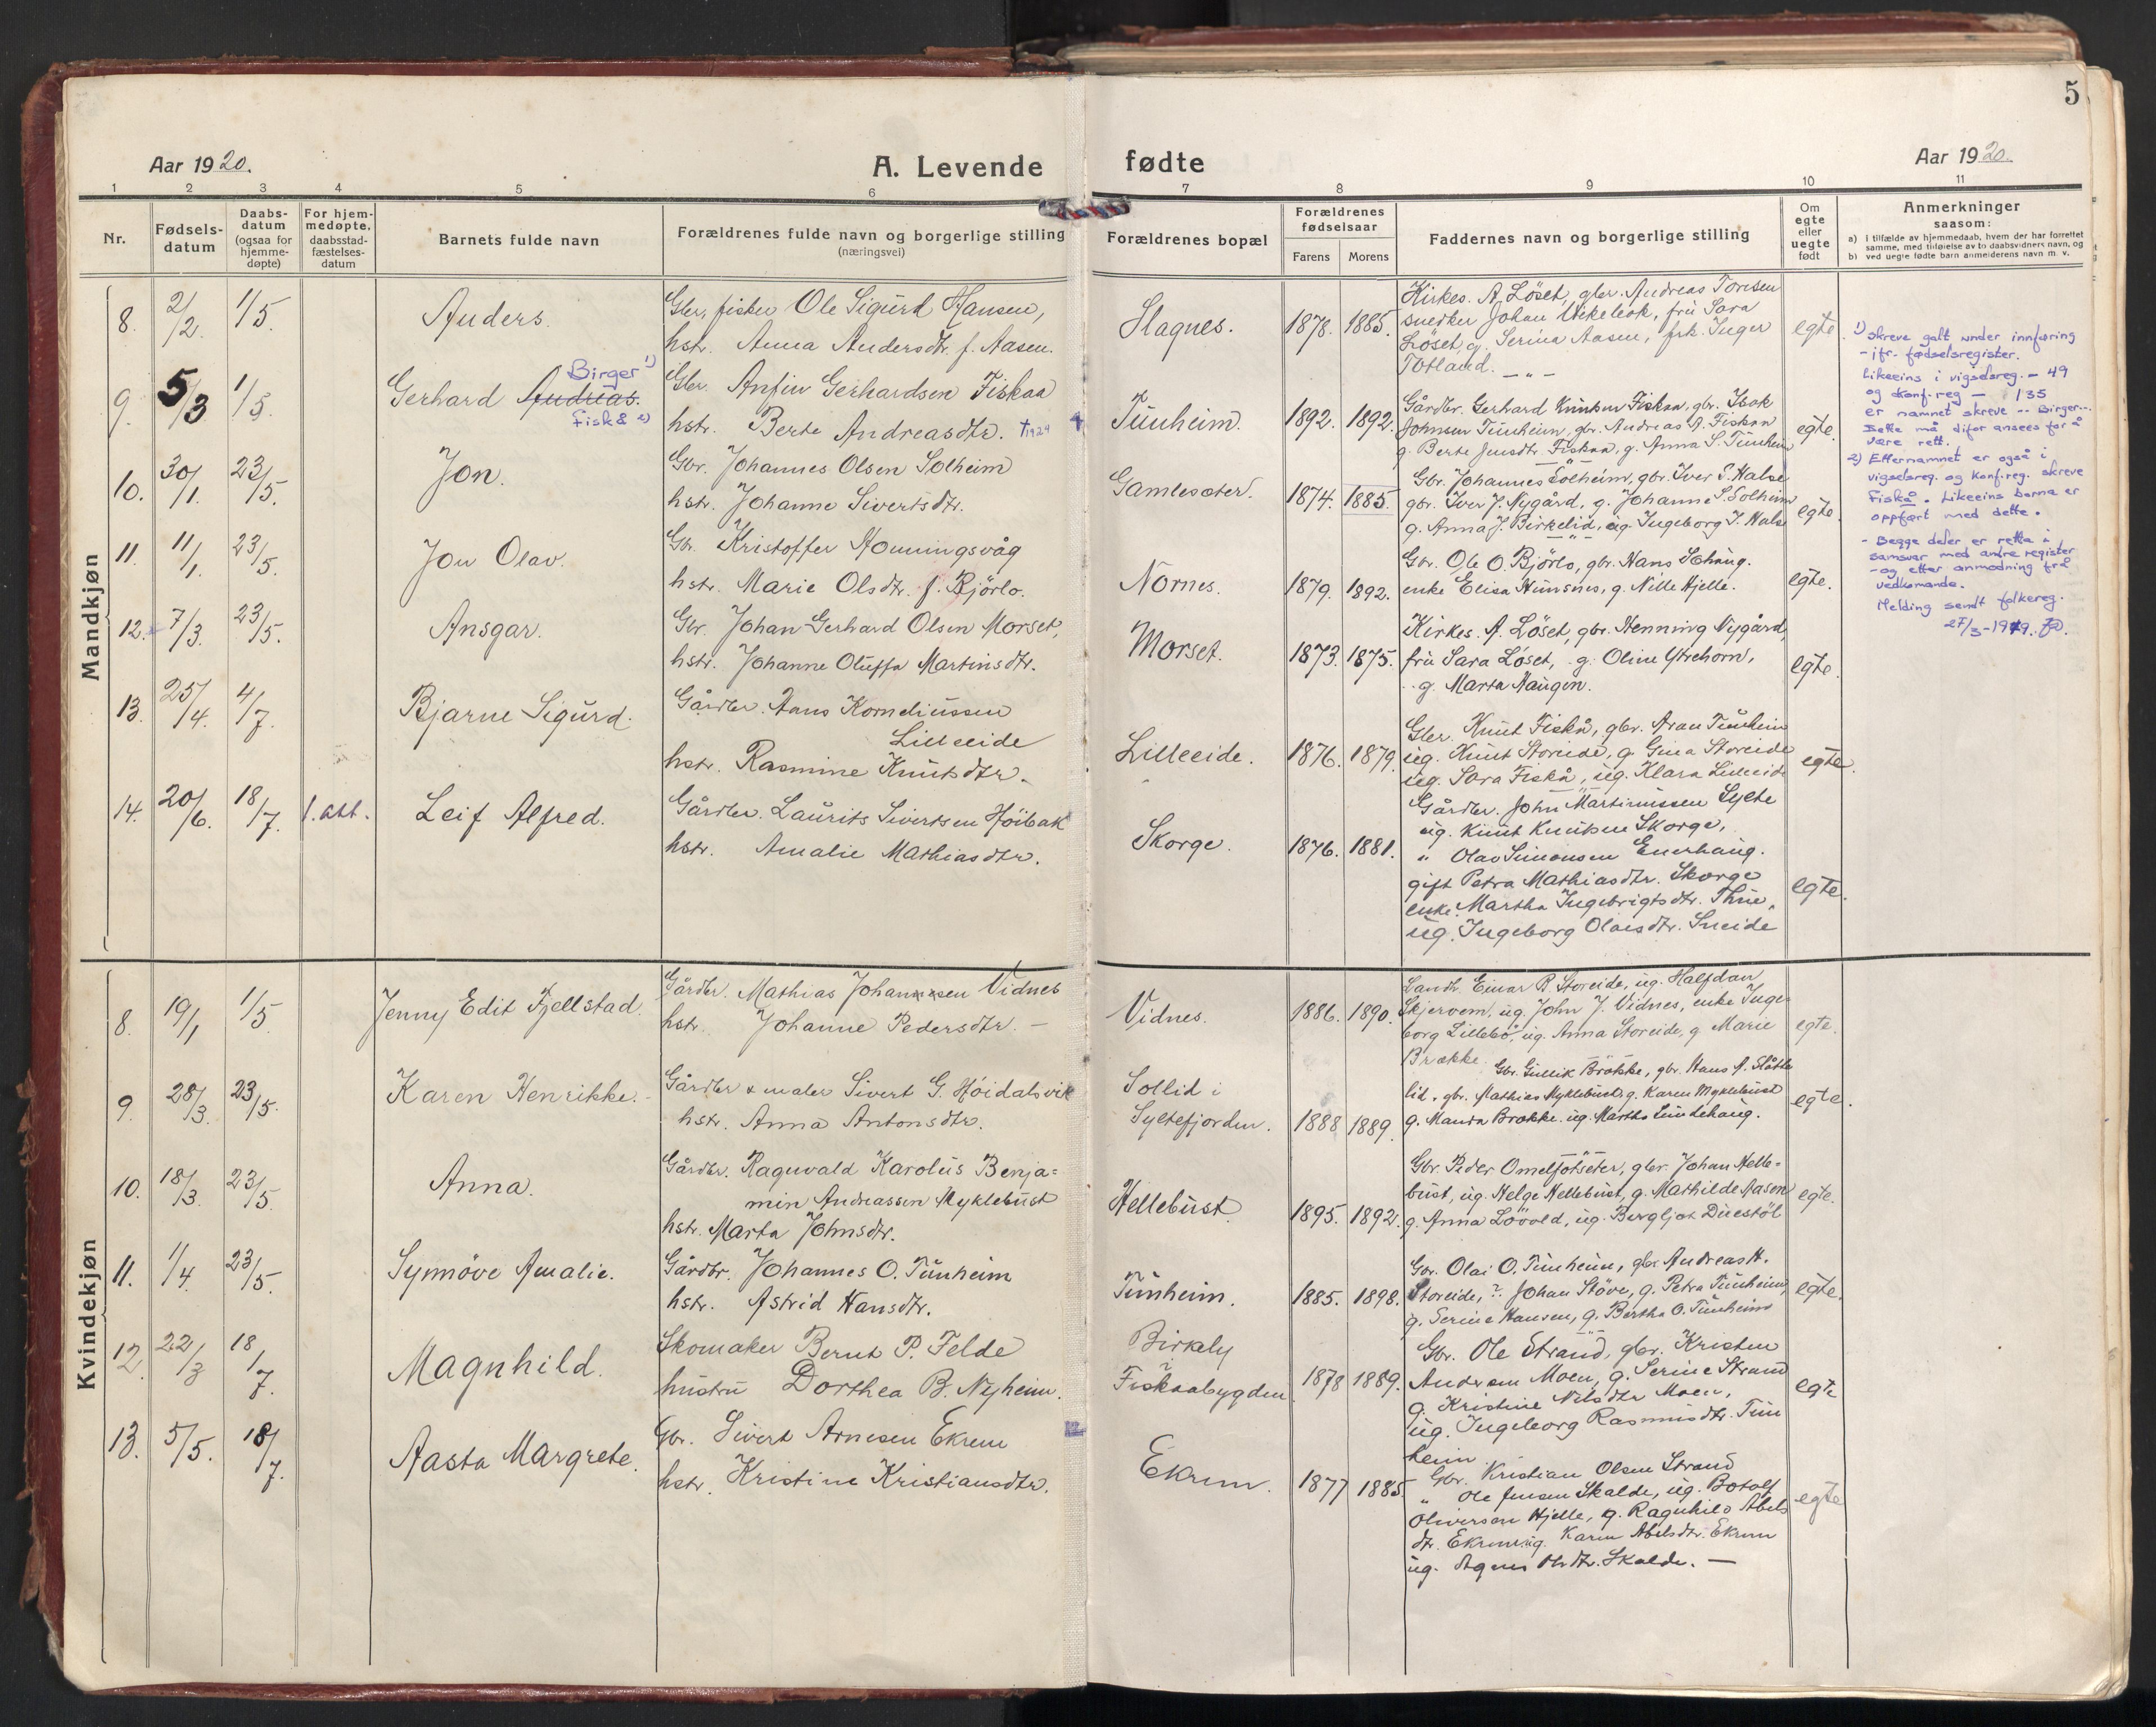 5
Aar 1920.
A. Levende fødte
Aar 1920.
1 2 3 4 5 6 7 8 9 10 11
Nr.
Fødsels-
datum
Daabs-
datum
(ogsaa for
hjemme-
døpte)
For hjem-
medøpte,
daabsstad-
fæstelses-
datum
Barnets fulde navn
Forældrenes fulde navn og borgerlige stilling
(næringsvei)
Forældrenes bopæl
Forældrenes
fødselsaar
Farens Morens
Faddernes navn og borgerlige stilling
Om
egte
eller
uegte
født
Anmerkninger
saasom:
a) i tilfælde av hjemmedaab, hvem der har forrettet
samme, med tilføielse av to daabsvidners navn, og
b) ved uegte fødte barn anmelderens navn m. v.
Mandkjøn
8. 2/2. 1/5. Anders.
Gbr, fisker Ole Sigurd Hansen,
hstr. Anna Andersdtr. f. Aasen.
Slagnes. 1878. 1885.
Kirkes. A. Løset, gbr. Andreas Toresen
snedker Johan Vikeleok, fru Sara
Løset, g. Serina Aasen, frk. Inger
Totland. — " —
egte.
9. 5/3 1/5. Gerhard Andreas.
Birger 1)
Fiskå 2)
Gbr. Anfin Gerhardsen Fiskaa
hstr. Berte Andreasdtr. †1924
Tunheim. 1892. 1892.
Gårdbr. Gerhard Knutsen Fiskaa, gbr. Isak
Johnsen Tunheim, gbr. Andreas A. Fiskaa
g. Berte Jensdtr. Fiskaa, g. Anna S. Tunheim
egte.
10. 30/1. 23/5. Jon.
Gbr. Johannes Olsen Solheim
hstr. Johanne Sivertsdtr.
Gamlesæter. 1874. 1885.
Gbr. Johannes Solheim, gbr. Iver S. Halse
gbr. Iver J. Nygård, g. Johanne S. Solheim
g. Anna J. Birkelid, ug. Ingeborg I. Halse
egte.
11. 11/1. 23/5. Jon Olav.
Gbr. Kristoffer Honningsvåg
hstr. Marie Olsdtr. f. Bjørlo.
Nornes. 1879. 1892.
Gbr. Ole O. Bjørlo, gbr. Hans Schaug.
enke Elisa Humsnes, g. Nille Hjelle.
egte.
12. 7/3. 23/5. Ansgar.
Gbr. Johan Gerhard Olsen Morset,
hstr. Johanne Oluffa Martinsdtr.
Morset. 1873. 1875.
Kirkes. A. Løset, gbr. Henning Nygård,
fru Sara Løset, g. Oline Ytrehorn,
g. Marta Haugen.
egte.
13. 25/4. 4/7. Bjarne Sigurd.
Gårdbr. Hans Korneliussen
Lilleeide
hstr. Rasmine Knutsdtr.
Lilleeide. 1876. 1879.
Gbr. Knut Fiskå, gbr. Aran Tunheim
ug. Knut Storeide, g. Gina Storeide
ug. Sara Fiskå, ug. Klara Lilleeide
egte.
14. 20/6. 18/7. 1. att. Leif Alfred.
Gårdbr. Laurits Sivertsen Höibak
hstr. Amalie Mathiasdtr.
Skorge. 1876. 1881.
Gårdbr. John Martinussen Sylte
ug. Knut Knutsen Skorge,
" Olav Simonsen Enerhaug.
gift Petra Mathiasdtr. Skorge
enke Martha Ingebrigtsdtr. Thue,
ug. Ingeborg Olaisdtr. Sneide
egte.
1) skreve galt under innføring
- jfr. fødselsregister.
Likeeins i vigselsreg. - 49
og konf.reg — 135
er namnet skreve -- Birger--.
Dette må difor ansees for å
være rett.
2) Etternamnet er også i
vigselsreg. og konf.reg. skreve
Fiskå. Likeeins borna er
oppført med dette.
- Begge deler er retta i
samsvar med andre register
- og etter anmodning frå
vedkomande.
Melding sendt folkereg.
27/3-1979.
Kvindekjøn
8. 19/1 1/5. Jenny Edit Fjellstad.
Gårdbr. Mathias Johannesen Vidnes
hstr. Johanne Pedersdtr. —
Vidnes. 1886. 1890.
Landh. Einar R. Storeide, ug. Halfdan
Skjervem, ug. John J. Vidnes, enke Inge-
borg Lillebø, ug. Anna Storeide, g. Marie
Brække.
egte.
9. 28/3. 23/5. Karen Henrikke.
Gårdbr & maler Sivert G. Höidalsvik
hstr. Anna Antonsdtr.
Sollid i
Syltefjorden. 1888 1889.
Gbr. Gullik Brække, gbr. Hans A. Slåtte
lid, gbr. Mathias Myklebust, g. Karen Myklebust
g. Manda Brække. ug. Martha Lindehaug.
egte.
10. 18/3. 23/5. Anna.
Gårdbr. Ragnvald Karolus Benja=
min Andreassen Myklebust
hstr. Marta Johnsdtr.
Hellebust. 1895. 1892.
Gbr. Peder Omeljotseter, gbr. Johan Helle=
bust, ug. Helge Hellebust, g. Mathilde Aasen
g. Anna Løvold, ug. Bergljot Duestøl
egte.
11. 1/4. 23/5. Synnöve Amalie.
Gårdbr. Johannes O. Tunheim
hstr. Astrid Hansdtr.
Tunheim. 1885. 1898.
Gbr. Olai O. Tunheim, gbr Andreas H.
Storeide, ?. Johan Støve, g. Petra Tunheim,
g. Serine Hansen, g. Bertha O. Tunheim
egte.
12. 22/3 18/7. Magnhild.
Skomaker Bernt P. Felde
hustru Dorthea B. Nyheim.
Birkely
i
Fiskaabygden. 1878 1889.
Gbr. Ole Strand, gbr. Kristen
Andersen Moen, g. Serine Strand
g. Kristine Nilsdtr Moen,
ug. Ingeborg Rasmusdtr. Tun
heim
egte
13. 5/5. 18/7. Aasta Margrete.
Gbr. Sivert Arnesen Ekrem
hstr. Kristine Kristiansdtr.
Ekrem. 1877 1885
Gbr. Kristian Olsen Strand
" Ole Jensen Skalde, ug. Botolf
Oliverson Hjelle, g. Ragnhild Abels
dtr. Ekrem, ug. Karen Abelsdtr. Ekrem
ug. Agnes Olsdtr. Skalde. —
egte